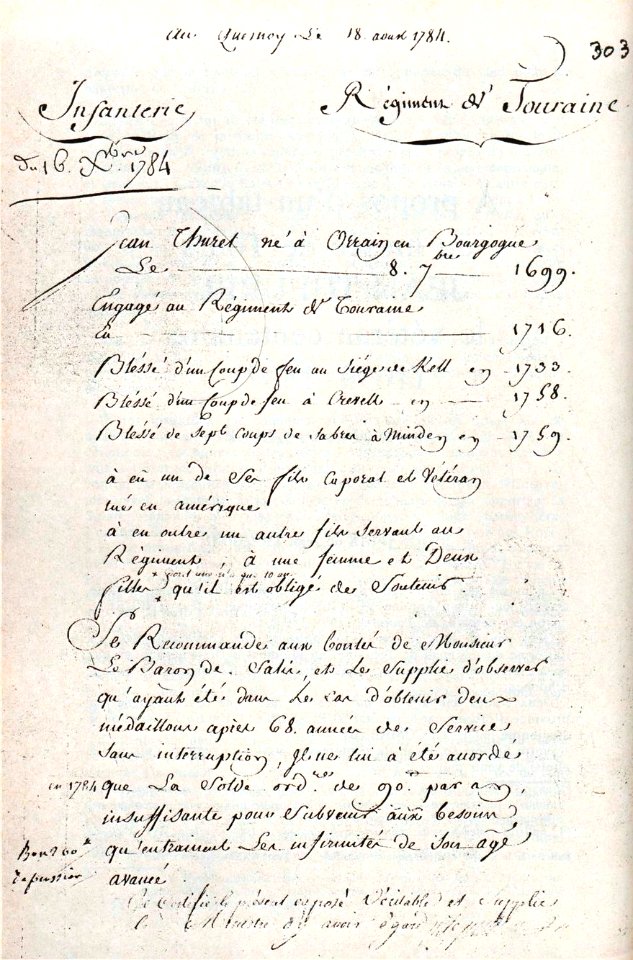 au Quesnoy Le 18 aoust 1784.
303
Infanterie
Régiment de Touraine
du 16. Xbre 1784
Jean Thuret né à Orrain en Bourgogne
Le 8. 7bre 1699.
Engagé au Régiment de Touraine
En 1716.
Bléssé d'un Coup de feu au Siége de Kell en 1733.
Bléssé d'un Coup de feu à Crevelt en 1758.
Bléssé de sept coups de Sabre à Minden en 1759.
à eû un de Ses fils Caporal et Vétéran
tué en amérique
à en outre un autre fils Servant au
Régiment, à une femme et Deux
filles qu'il est obligé de Soutenir
Se Recommande aux bontés de Monsieur
Le Baron de Salis, et Le Supplie d'observer
qu'ayant été dans Le Cas d'obtenir deux
médaillons après 68. années de Service
Sans interruption, Il ne lui à été accordé
en 1784 que La Solde ord.res de 90. par an,
insuffisante pour Subvenir aux besoins
qu'entrainent Les infirmités de Son agé
avancé
Bon 200
Je Certifie le présent exposé Véritable et Supplie
Le Ministre d'y avoir égard